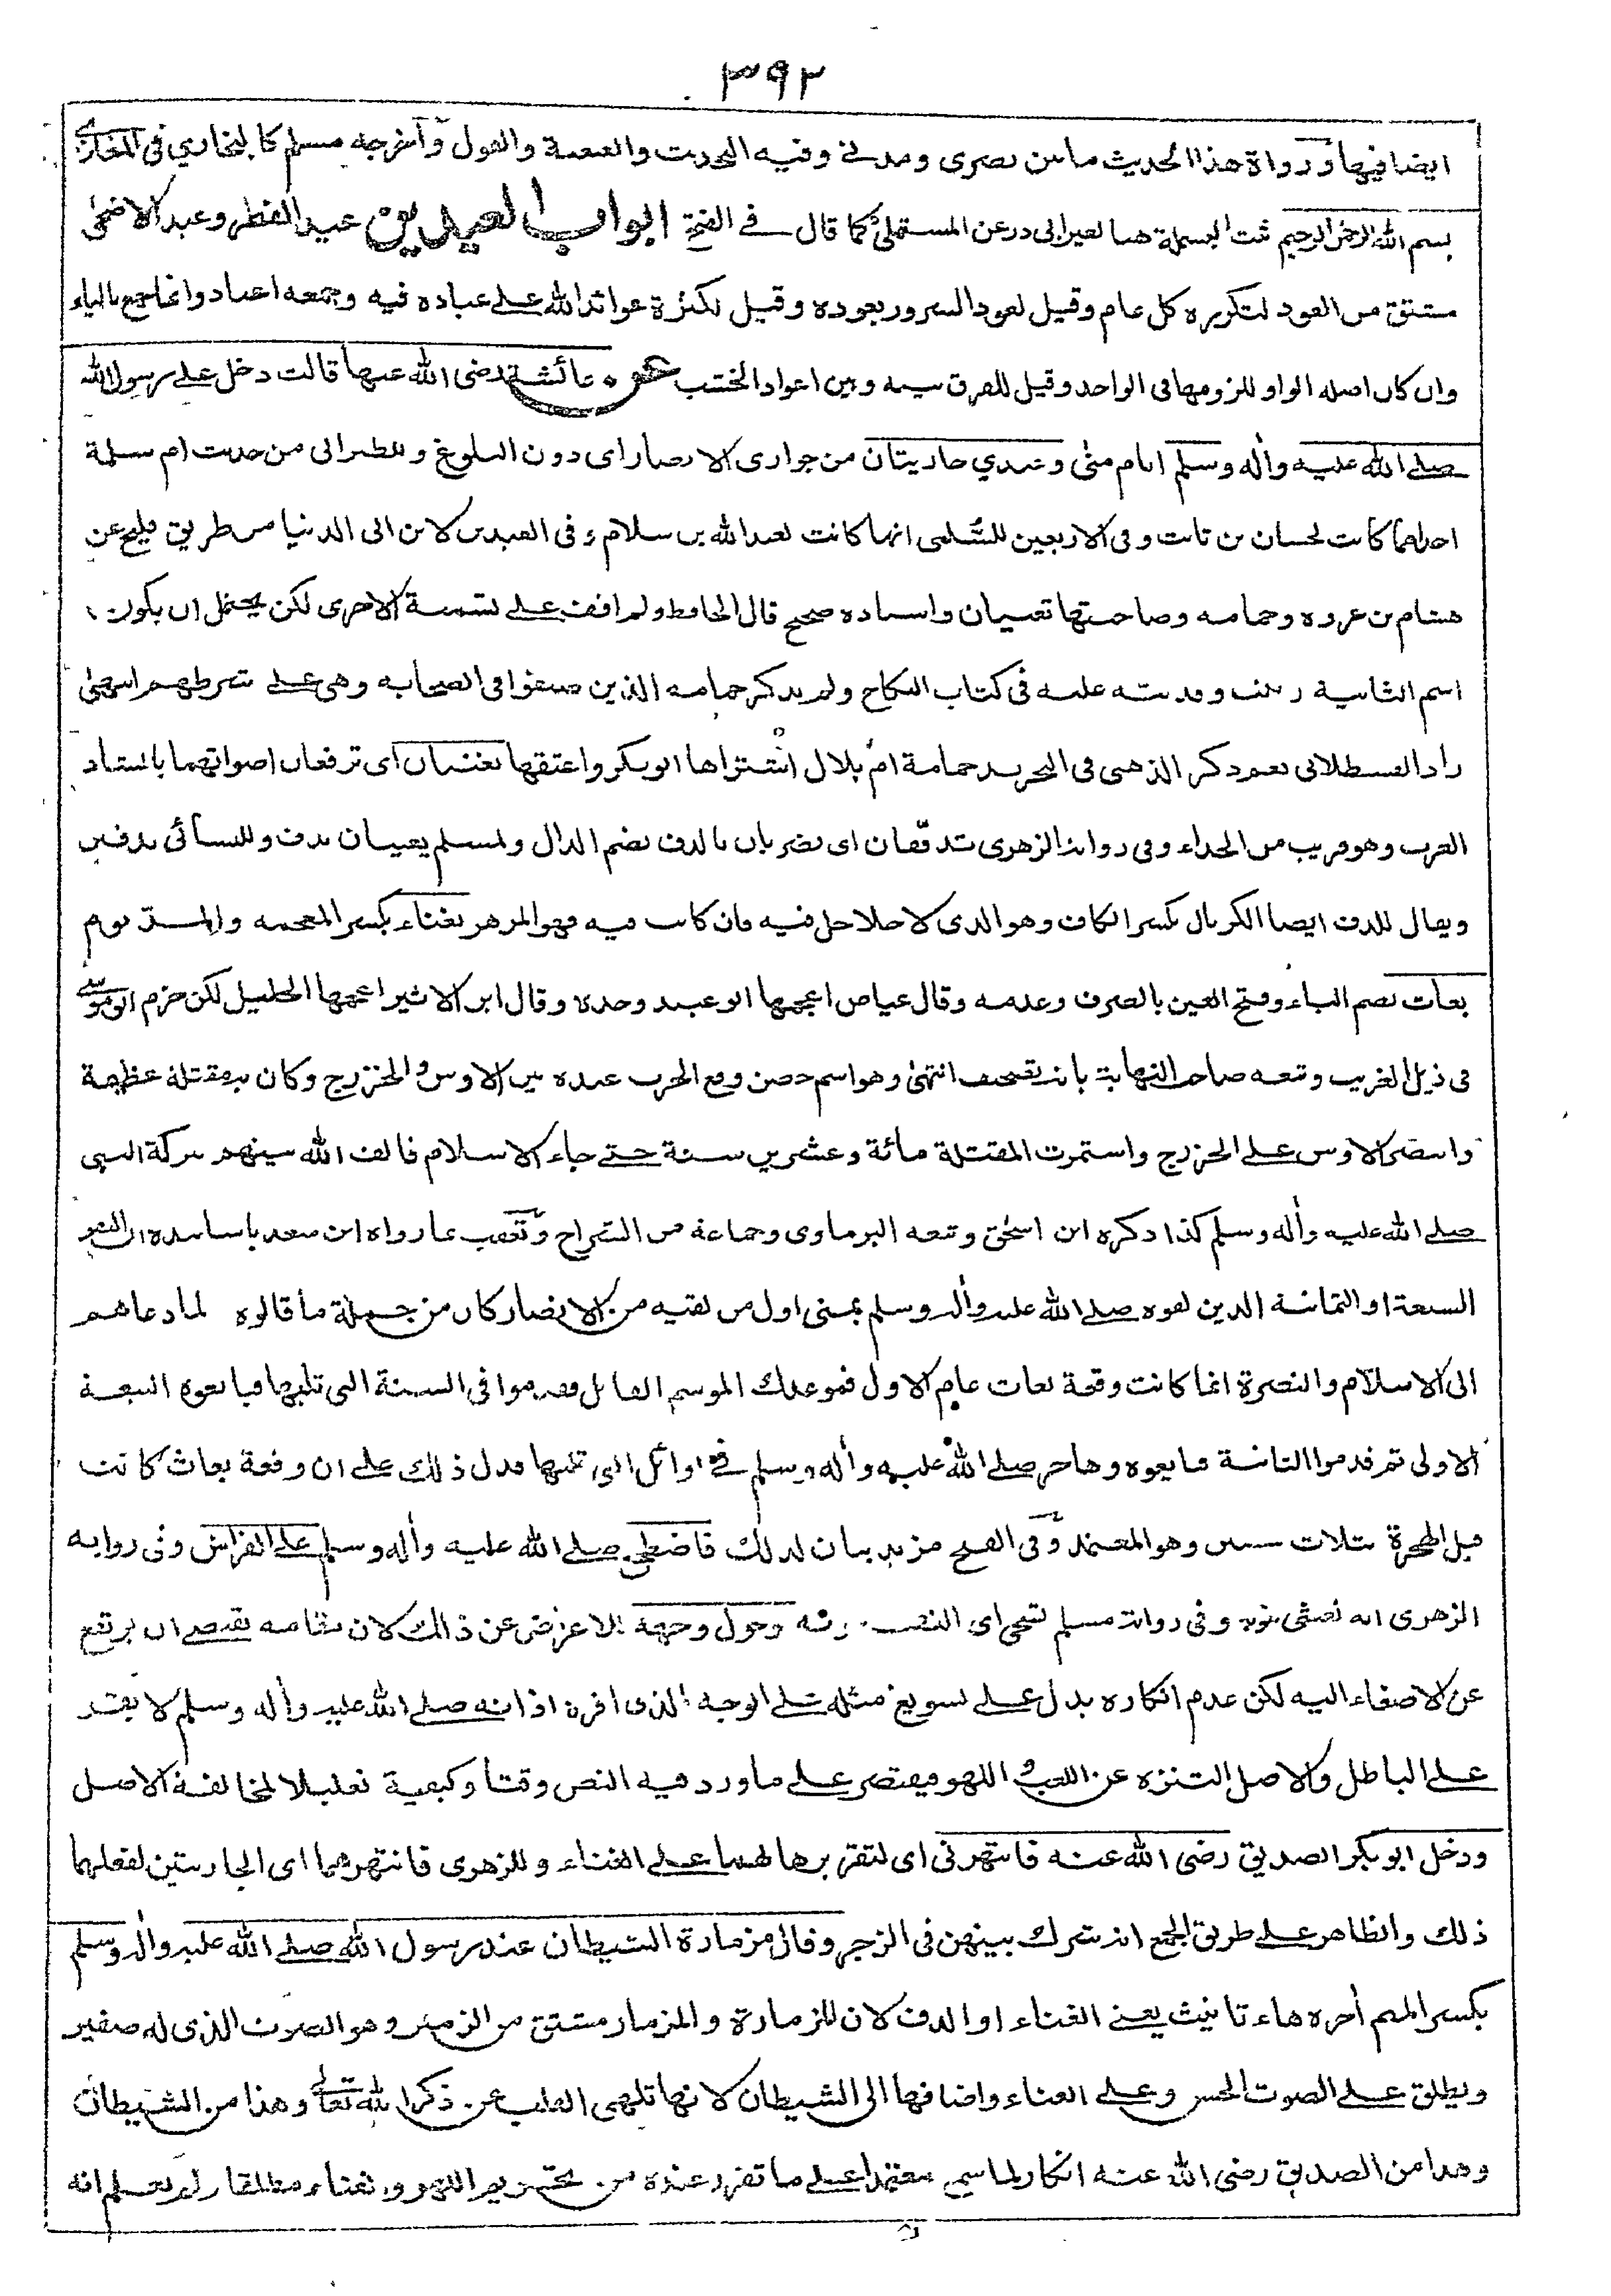 ٣٩٢
ايضا فيها ورواة هذا الحديث ما بين بصرى ومدنى وفيه التحديث والعنعنة والقول وأخرجه مسلم كالبخاري في المغازى
بسم الله الرحمن الرحيم ثبت البسملة هنا لغير ابى ذر عن المستملى كما قال فى الفتح ابواب العيدين عيد الفطر وعيد الاضحى
مشتق من العود لتكريره كل عام وقيل لعود السرور بعوده وقيل لكثرة عوائد الله على عباده فيه وجمعه اعياد وانما جمع بالياء
وان كان اصله الواو للزومها فى الواحد وقيل للفرق بينه وبين اعواد الخشب عن عائشة رضى الله عنها قالت دخل على رسول الله
صلى الله عليه وأله وسلم ايام منى وعندي جاريتان من جوارى الانصار اى دون البلوغ وللطبرانى من حديث ام سلمة
احداهما كانت لحسان بن ثابت وفى الاربعين للسُّلمى انها كانت لعبد الله بن سلام وفى العيدين لابن ابى الدنيا من طريق فليح عن
هشام بن عروه وحمامه وصاحبتها تغنيان واسناده صحيح قال الحافظ ولم اقف على تسمية الاخرى لكن يحتمل ان يكون
اسم الثانية زينب وقد بينته عليه فى كتاب النكاح ولم يذكر حمامه الذين صنفوا فى الصحابه وهى على شرطهم انتهى
زاد القسطلانى نعم ذكر الذهبى فى التجريد حمامة ام بلال اشتراها ابو بكر واعتقها تغنيان اى ترفعان اصواتهما بانشاد
العرب وهو قريب من الحداء وفى رواية الزهرى تدففان اى تضربان بالدف بضم الدال ولمسلم يغنيان بدف وللنسائى بدفين
ويقال للدف ايضا الكربال بكسر الكاف وهو الذى لا جلاجل فيه فان كانت فيه فهو المزهر بغناء بكسر المعجمه والمد يوم
بعاث بضم الباء وفتح العين بالصرف وعدمه وقال عياض اعجمها ابو عبيد وحده وقال ابن الاثير اعجمها الخليل لكن جزم ابو موسى
فى ذيل الغريب وتبعه صاحب النهاية بانه تصحيف انتهى وهو اسم حصن وقع الحرب عنده بين الاوس والخزرج وكان به مقتلة عظيمة
وانتصر الاوس على الخزرج واستمرت المقتلة مائة وعشرين سنة حتى جاء الاسلام فالف الله بينهم ببركة النبى
صلى الله عليه وأله وسلم كذا ذكره ابن اسحق وتبعه البرماوى وجماعة من الشراح وتعقب بما رواه ابن سعد باسانيده ان النفر
السبعة او الثمانية الذين لقوه صلى الله عليه وأله وسلم بمنى اول من لقيه من الانصار كان من جملة ما قالوه لما دعاهم
الى الاسلام والنصرة انما كانت وقعة بعاث عام الاول فموعدك الموسم القابل فقدموا فى السنة التى تليها فبايعوه البيعة
الاولى ثم قدموا الثانية فبايعوه وهاجر صلى الله عليه وأله وسلم فى اوائل التى تليها فدل ذلك على ان وقعة بعاث كانت
قبل الهجرة بثلاث سنين وهو المعتمد وفى الفتح مزيد بيان لذلك فاضطجع صلى الله عليه وأله وسلم على الفراش وفى روايه
الزهرى انه تغشى بثوبه وفى رواية مسلم تسجى اى التف بثوبه وحول وجهه للاعراض عن ذلك لان مقامه يقتضى ان يرتفع
عن الاصغاء اليه لكن عدم انكاره يدل على تسويغ مثله على الوجه الذى اقره اذ انه صلى الله عليه وأله وسلم لا يقر
على الباطل والاصل التنزه عن اللعب واللهو فيقتصر على ما ورد فيه النص وقتا وكيفية تقليلا لمخالفة الاصل
ودخل ابو بكر الصديق رضى الله عنه فانتهرنى اى لتقريرها لهما على الغناء وللزهرى فانتهرهما اى الجاريتين لفعلهما
ذلك والظاهر على طريق الجمع انه شرك بينهن فى الزجر وقال مزمارة الشيطان عند رسول الله صلى الله عليه وأله وسلم
بكسر الميم أخره هاء تانيث يعنى الغناء او الدف لان الزمارة والمزمار مشتق من الزمير وهو الصوت الذى له صفير
ويطلق على الصوت الحسن وعلى الغناء واضافها الى الشيطان لانها تلهى القلب عن ذكر الله تعالى وهذا من الشيطان
وهذا من الصديق رضى الله عنه انكار لما سمع معتمدا على ما تقرر عنده من تحريم اللهو والغناء مطلقا ولم يعلم انه